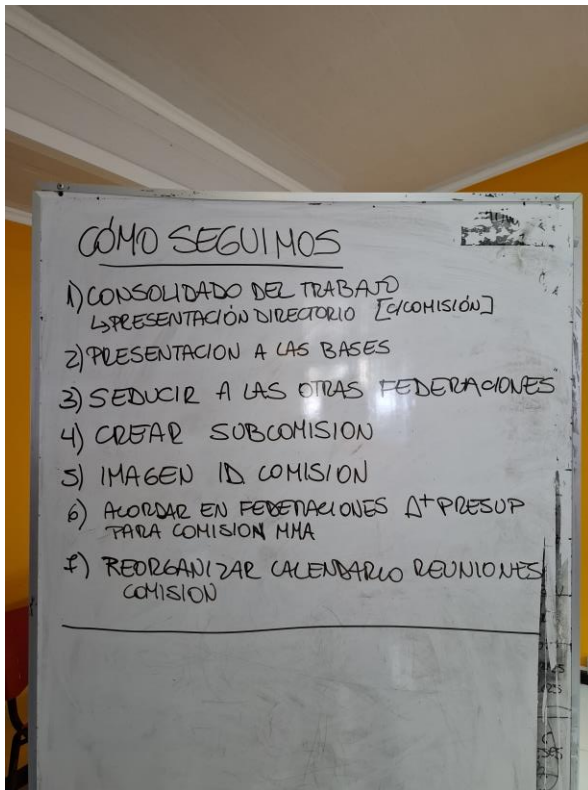 CÓMO SEGUIMOS
1) CONSOLIDADO DEL TRABAJO
↳ PRESENTACIÓN DIRECTORIO [C/COMISIÓN]
2) PRESENTACION A LAS BASES
3) SEDUCIR A LAS OTRAS FEDERACIONES
4) CREAR SUBCOMISION
5) IMAGEN ID COMISION
6) ACORDAR EN FEDERACIONES Δ+ PRESUP
PARA COMISION MMA
7) REORGANIZAR CALENDARIO REUNIONES
COMISION